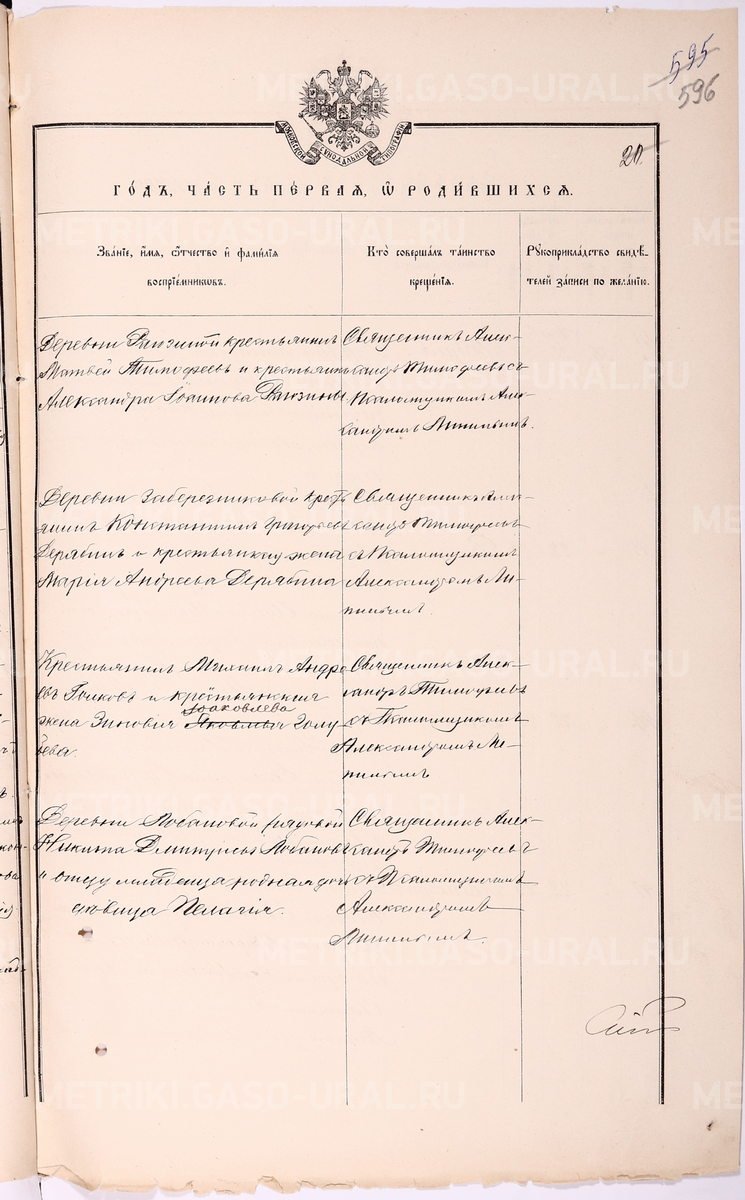 595
596
20
МОСКОВСКОЙ СУНОДАЛЬНОЙ ТИПОГРАФІИ
ГО́ДЪ, ЧА́СТЬ ПЕ́РВАЯ, Ѡ РОДИ́ВШИХСЯ.
Зва́нїе, и́мя, ѻ҆́тчество и҆ фами́лїя
воспрїе́мниковъ.
Кто̀ соверша́лъ та́инство
креще́нїя.
Рꙋкоприкла́дство свидѣ́-
телей за́писи по жела́нїю.
Деревни крестьянинъ
Матвей Тимофеевъ и
Александра Іоаннова
Священникъ Алек-
сандръ Тимофеевъ съ
Псаломщикомъ Але-
ксандромъ
Деревни
Константинъ Григорьевъ
Дерябинъ и крестьянская жена
Марія Андреева Дерябина
Священникъ Алек-
сандръ Тимофеевъ
съ Псаломщикомъ
Александромъ
Крестьянинъ Михаилъ Андре
евъ и крестьянская
Іоаковлева
жена Зиновія Голу
бева.
Священникъ Алек-
сандръ Тимофеевъ
съ Псаломщикомъ
Александромъ
Деревни Лобановой рядовой
Никита Дмитріевъ Лобановъ
и отцу младенца родная дочь
дѣвица Пелагія.
Священникъ Алек-
сандръ Тимофеевъ
съ Псаломщикомъ
Александромъ
METRIKI.GASO-URAL.RU